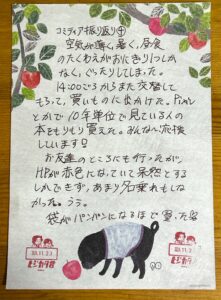 コミティア振り返り④
空気が薄く、暑く、昼食
のたくわえがおにぎり1つしか
なく、ぐったりしてしまった。
14:00ごろからまた交替して
もらって、買いものに出かけた。Pixiv
とかで10年単位で見ている人の
本をもりもり買えた。みんなへ応援
しています!!
お友達のところにも行ったが、
HPが赤色になっていて呆然とする
しかできず、あまりお礼もし
なかった。うう。
袋がパンパンになるほど買った